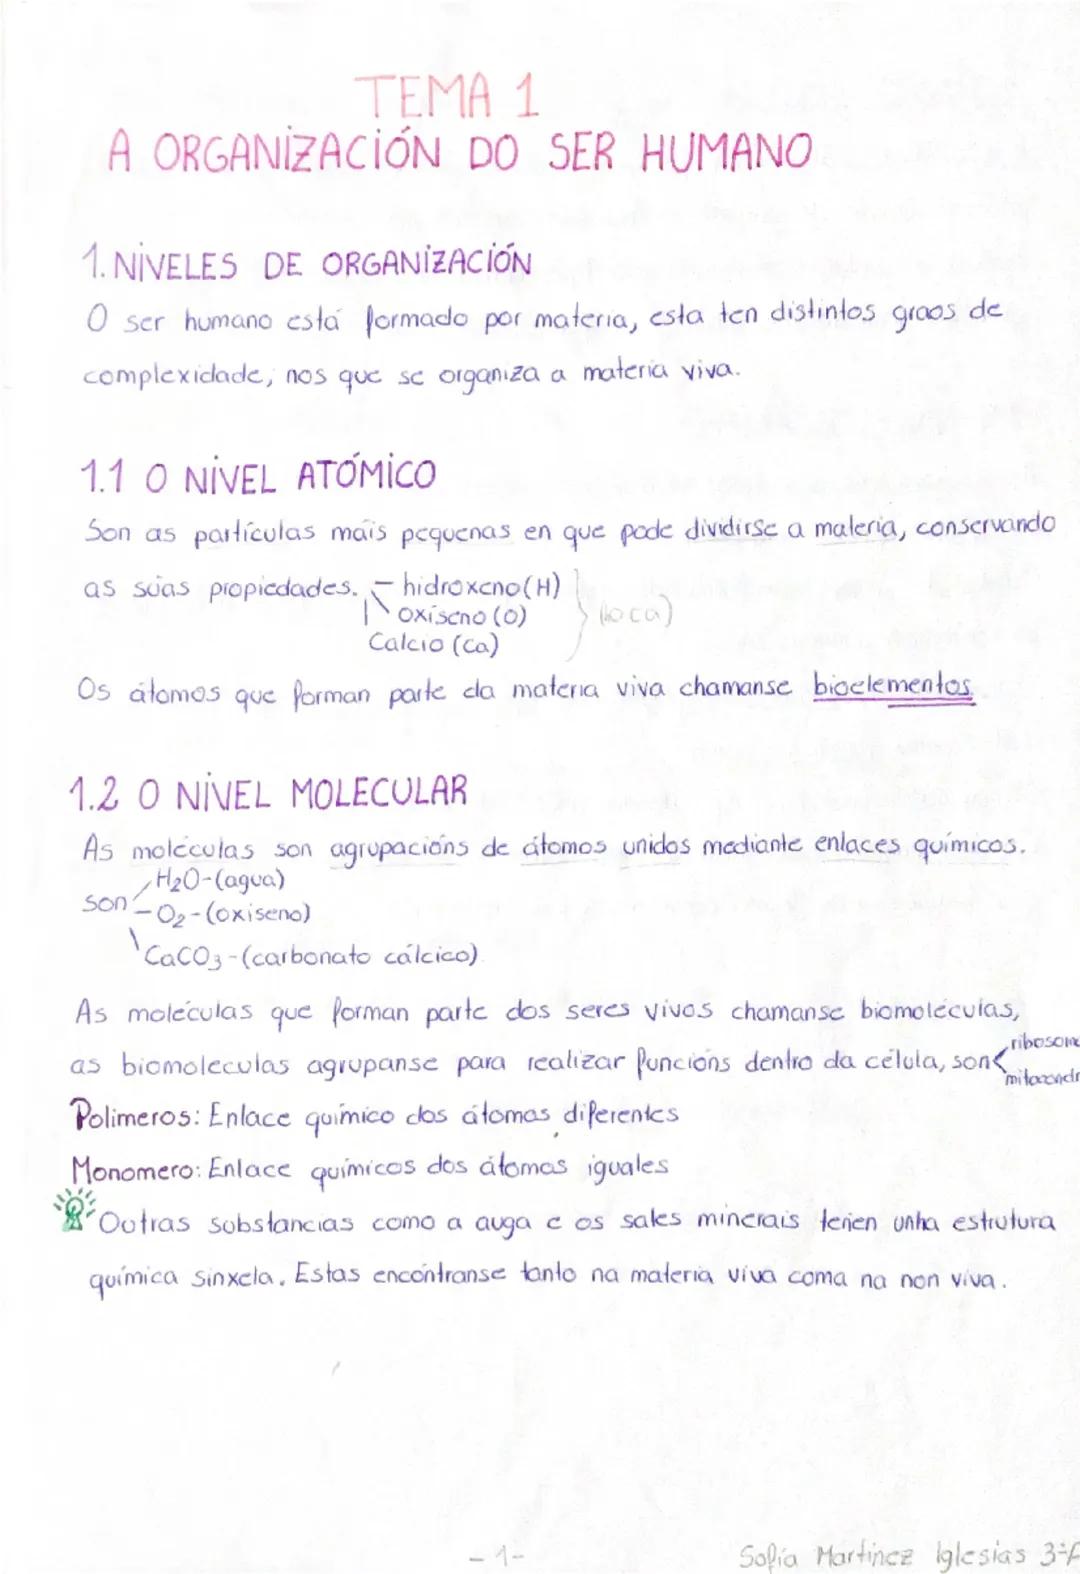 TEMA 1
A ORGANIZACIÓN DO SER HUMANO
1. NIVELES DE ORGANIZACIÓN
O ser humano está formado por materia, esta ten distintos graos de
complexidade, nos que se organiza a materia viva.
1.1 O NIVEL ATÓMICO
Son as partículas máis pequenas en que pode dividirse a materia, conservando
as súas propiedades. - hidroxeno (H)
oxíseno (O)
Calcio (Ca)
Os átomos que forman parte da materia viva chamanse bioelementos.
1.2 O NIVEL MOLECULAR
As moléculas son agrupacións de átomos unidos mediante enlaces químicos.
H2O-(agua)
son - O2-(oxiseno)
CaCO3-(carbonato cálcico)
As moléculas que forman parte dos seres vivos chamanse biomoléculas,
ribosom
as biomoleculas agrupanse para realizar funcións dentro da célula, son
mitocondr
Polimeros: Enlace químico dos átomos diferentes
Monomero: Enlace químicos dos átomos iguales
Outras substancias como a auga e os sales minerais teñen unha estrutura
química sinxela. Estas encóntranse tanto na materia viva coma na non viva.
- 1 -
Sofía Martínez Iglesias 3º